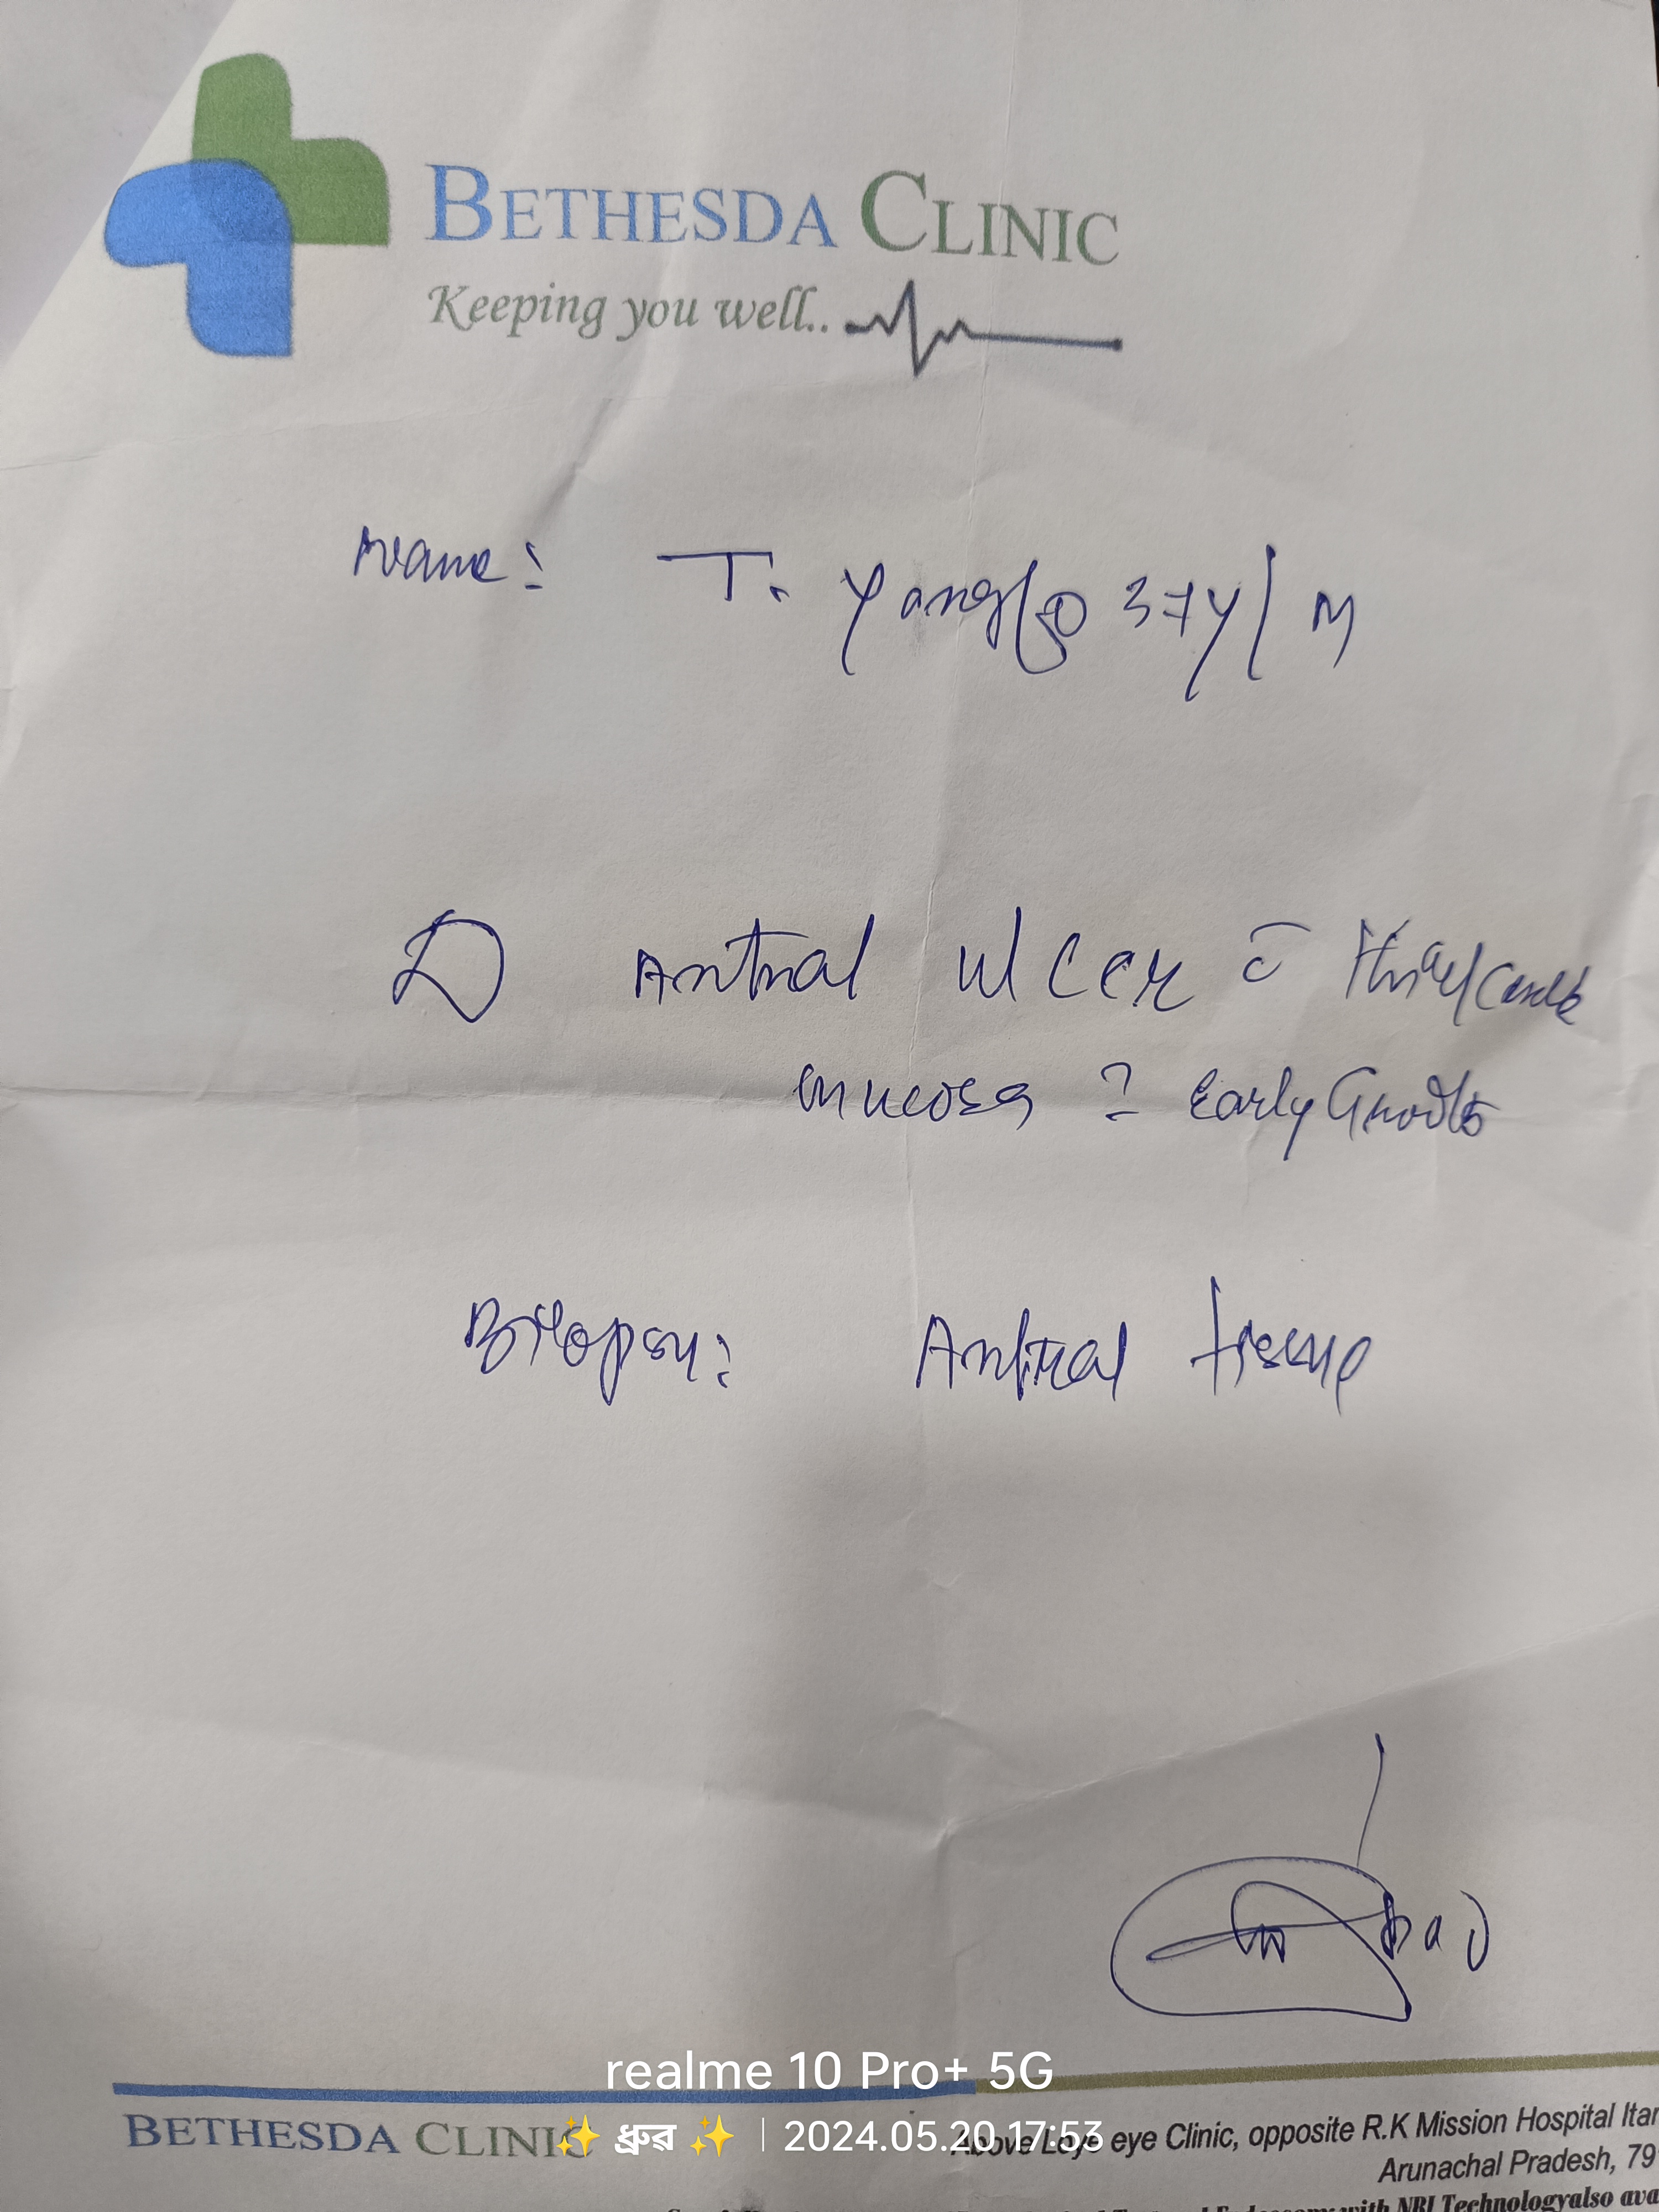 BETHESDA CLINIC
Keeping you well..
Name: T. 37y/M
D Antral ulcer c̄
mucosa ? Early Growth
Biopsy: Antral tissue
realme 10 Pro+ 5G
BETHESDA CLINIC
✨ ध्रुव ✨ | 2024.05.20 17:53
Above eye Clinic, opposite R.K Mission Hospital Itar
Arunachal Pradesh, 79
Endoscopy with NBI Technology also ava